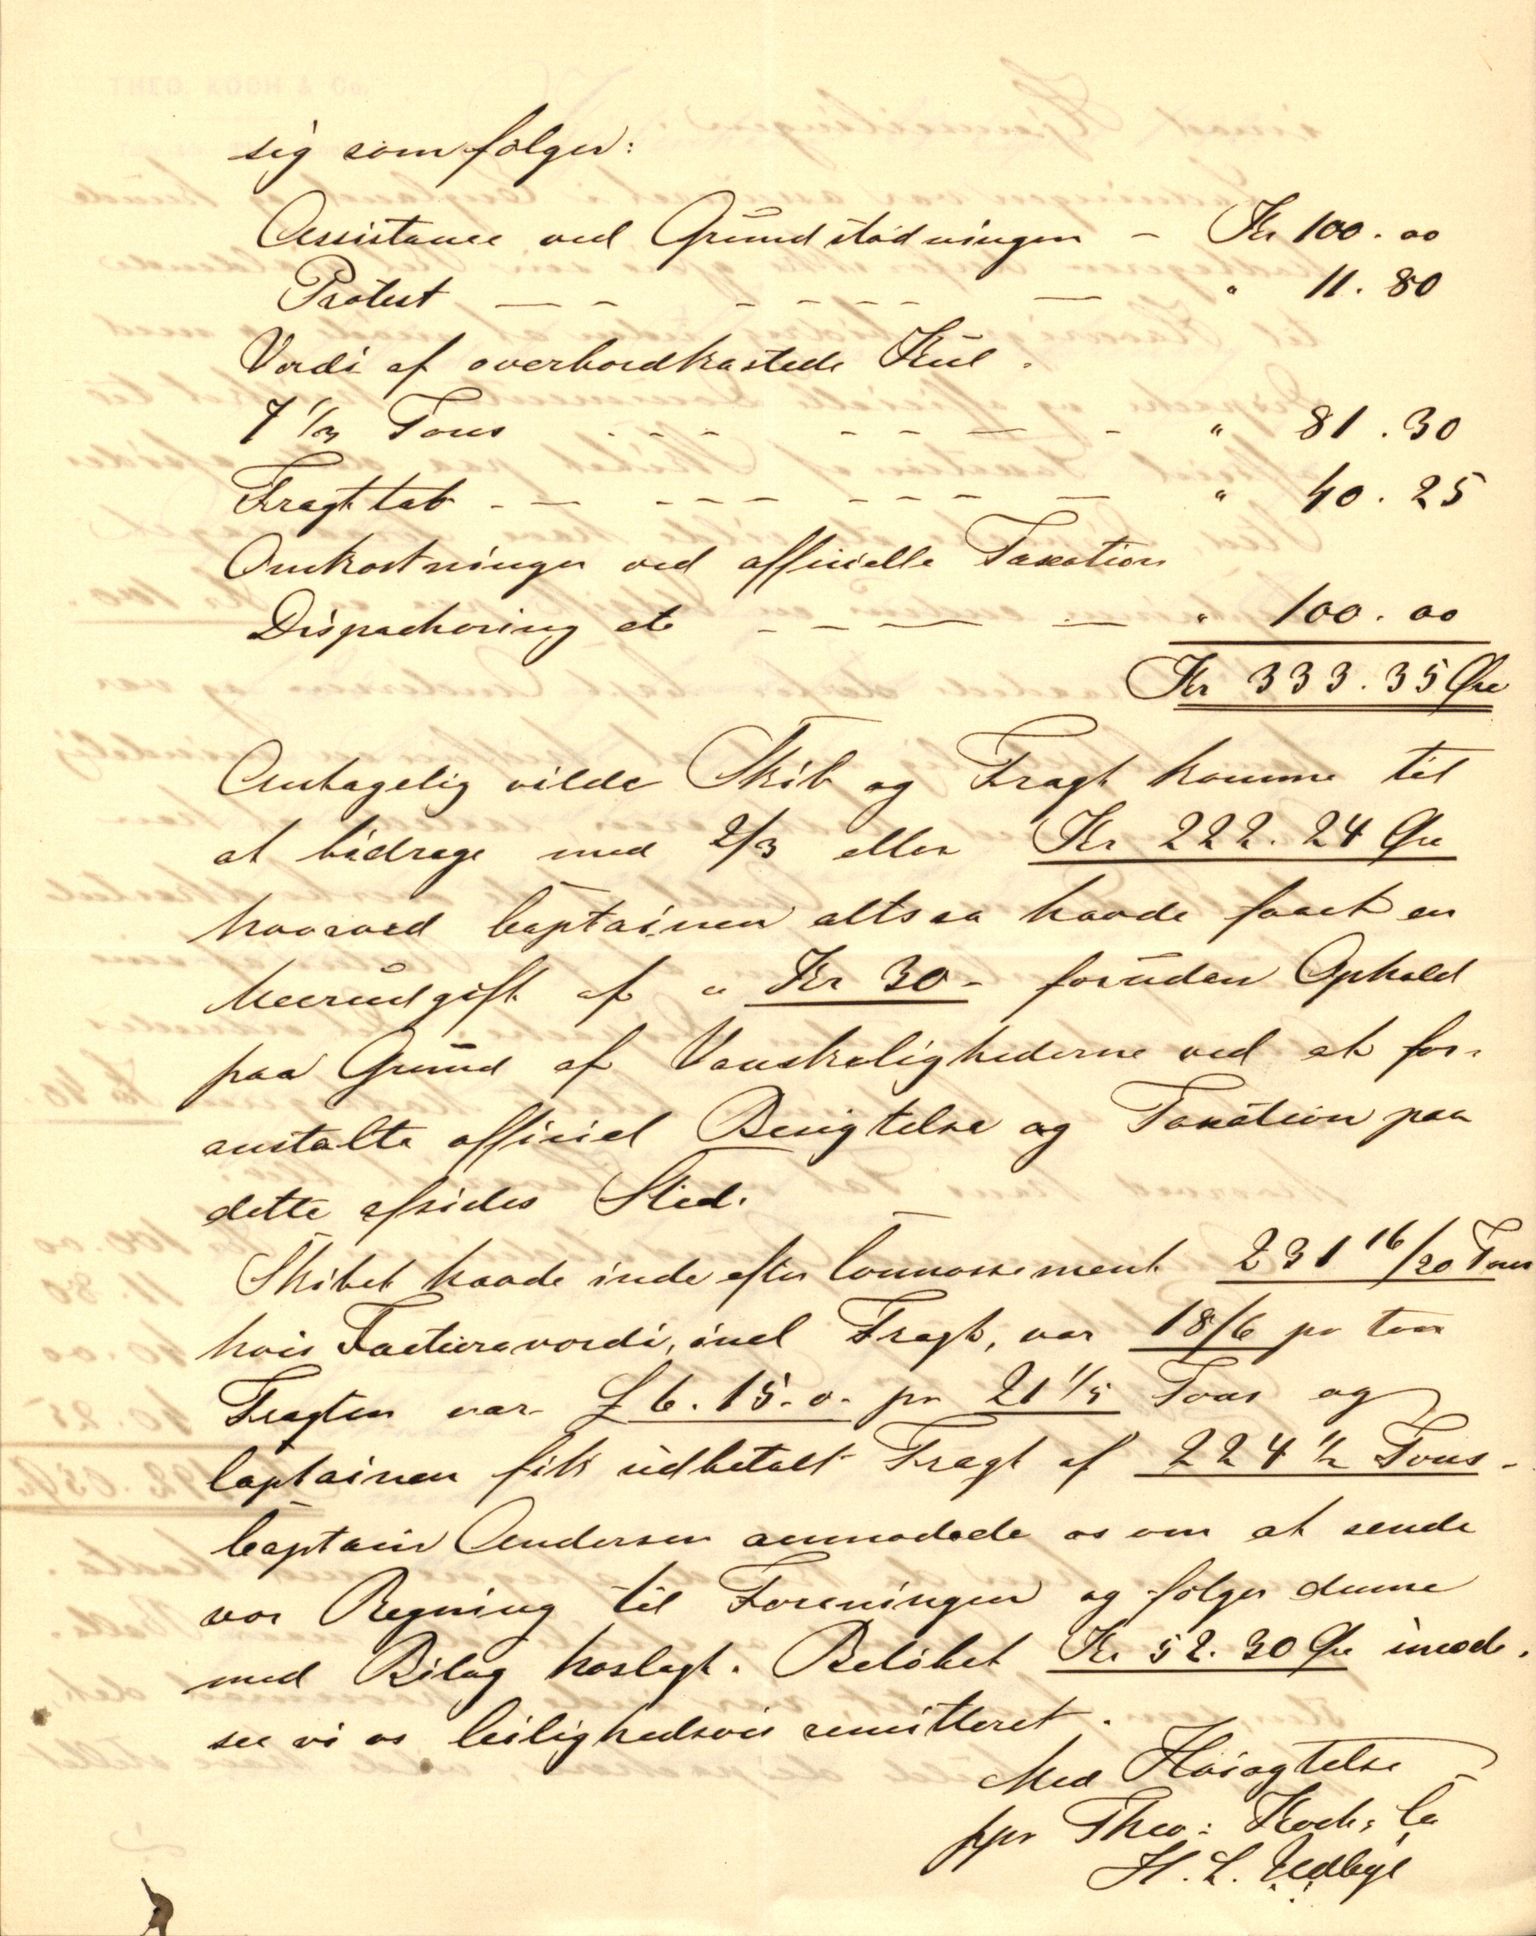 sig som følger:
Assistance ved Grundstødningen - Kr 100.00
Protest " 11.80
Verdi af overbordkastede Kul.
7 1/2 Tons " 81.30
Fragttab " 40.25
Omkostninger ved officielle Taxation
Dispachering etc " 100.00
Kr 333.35 Øre
Antagelig vilde Skib og Fragt komme til
at bidrage med 2/3 eller Kr 222.24 Øre
hvorved Captainen altsaa havde faaet en
Meerudgift af " Kr 30 - foruden Ophold
paa Grund af Vanskelighederne ved at for-
anstalte officiel Besigtelse og Taxation paa
dette afsides Sted.
Skibet havde inde efter Connossement 231 16/20 Tons
hvis Facturaverdi, incl Fragt, var 18/6 pr ton
Fragten var £ 6.15.0. pr 21 1/5 Tons og
Captainen fik udbetalt Fragt af 224 1/2 Tons -
Captain Andersen anmodede os om at sende
vor Regning til Foreningen og følger denne
med Bilag hoslagt. Beløbet Kr 52.30 Øre imøde-
see vi os leilighedsvis remitteret.
Med Høiagtelse
ppr Theo: Koch & Co
H. L.